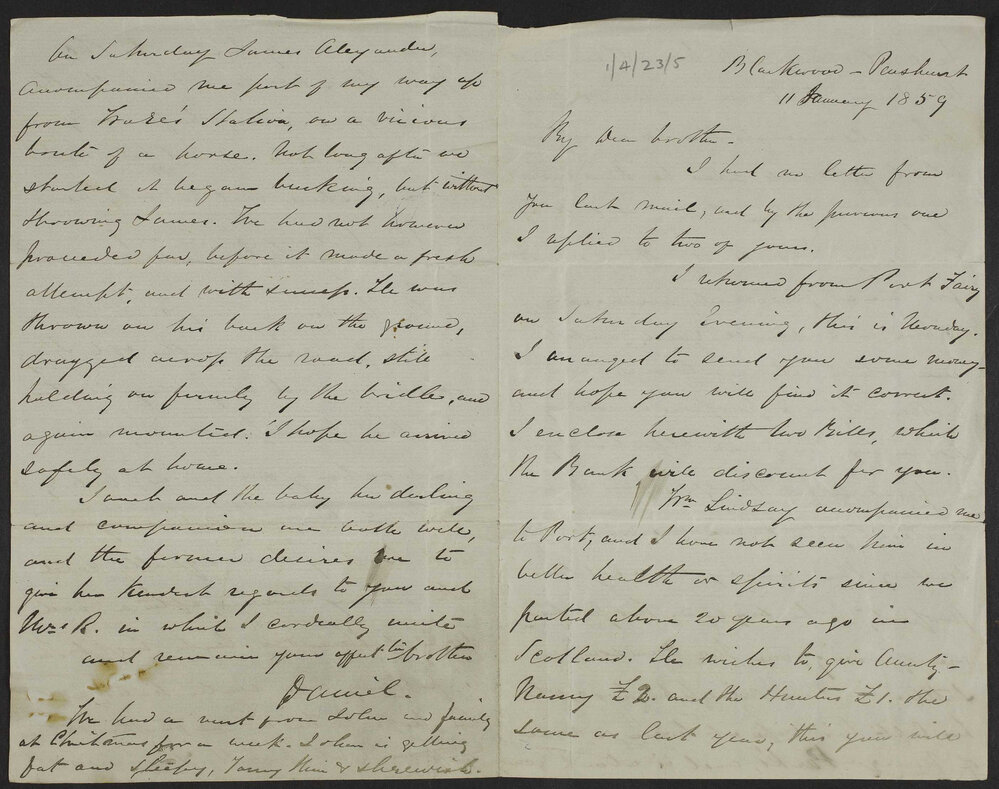 1/4/23/5
Blackwood - Penshurst
11 January 1859
My Dear brother -
I had no letter from
you last mail, and by the previous one
I replied to two of yours.
I returned from Port Fairy
on Saturday Evening, this is Monday.
I arranged to send you some money -
and hope you will find it correct.
I enclose herewith two Bills, which
the Bank will discount for you.
Wm Lindsay accompanied me
to Port, and I have not seen him in
better health or spirits since we
parted above 20 years ago in
Scotland. He wishes to give Aunty -
Nanny £2. and the Hunters £1. the
same as last year, this you will
On Saturday James Alexander,
accompanied me part of my way up
from Station, on a vicious
brute of a horse. Not long after we
started it began bucking, but without
throwing James. We had not however
proceeded far, before it made a fresh
attempt, and with success. He was
thrown on his back on the ground,
dragged across the road, still
holding on firmly by the bridle, and
again mounted. I hope he arrived
safely at home.
and the baby her darling
and companion are both well,
and the former desires me to
give her kindest regards to you and
Mrs R. in which I cordially unite
and remain your affect brother
Daniel.
We had a visit from John and family
at Christmas for a week. John is getting
fat and sleepy, thin & shrewish.